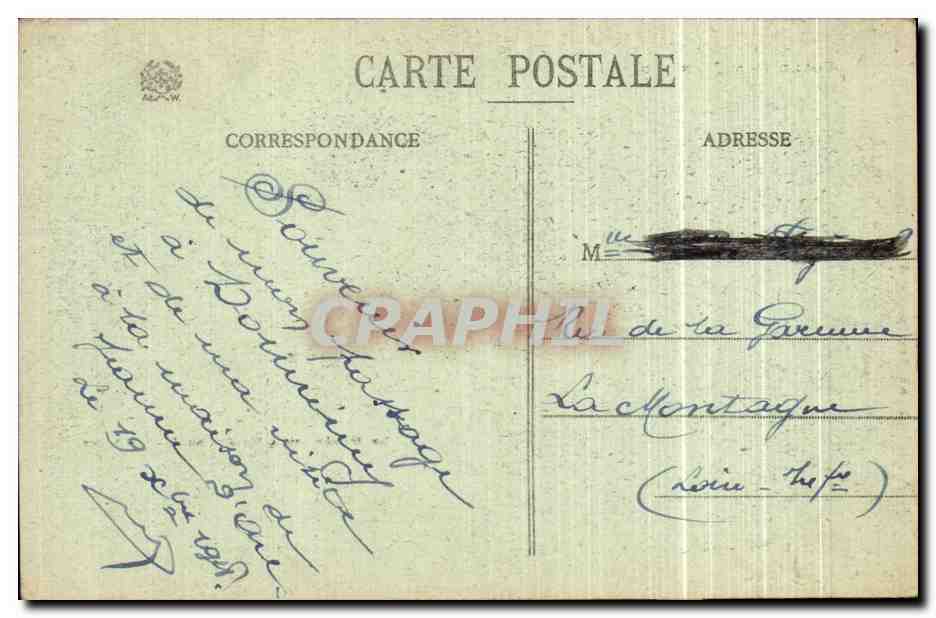 CARTE POSTALE
CORRESPONDANCE
ADRESSE
Souvenir
de mon passage
à Domrémy
et de ma visite
à la maison de
Jeanne d'Arc
Le 19 Xbre
M
de la Garenne
La Montagne
(Loire-Infre)
CRAPHIL